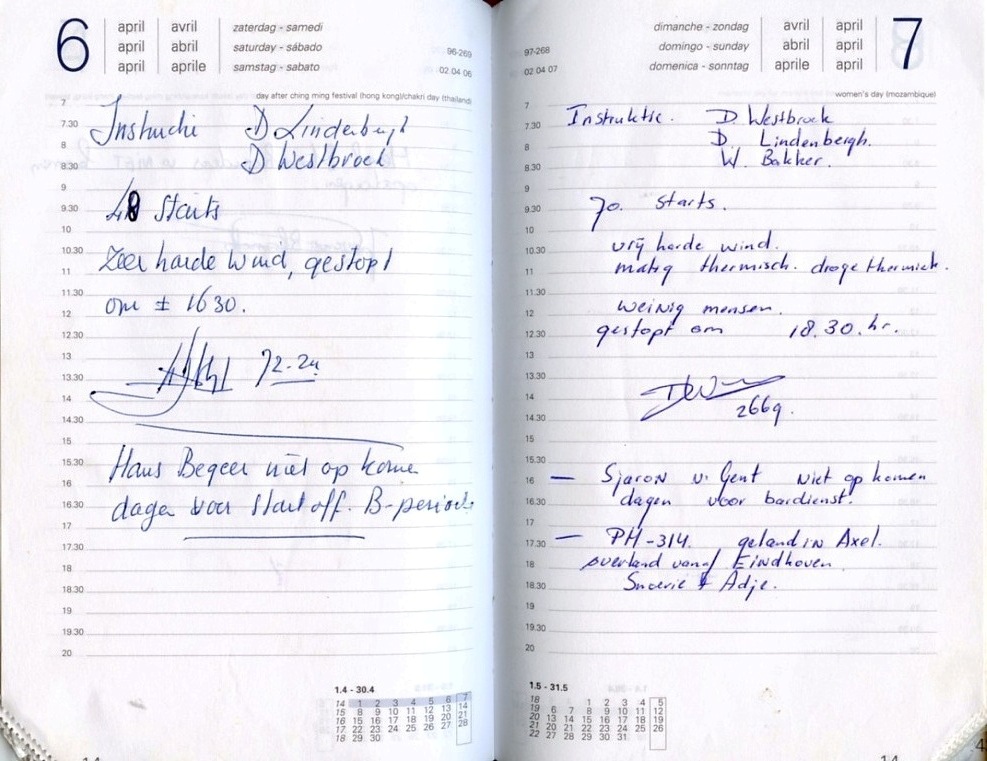 6
april avril
april abril
april aprile
zaterdag - samedi
saturday - sábado
samstag - sabato
96-269
02 04 06
day after ching ming festival (hong kong)/chakri day (thailand)
7
7.30 Instructie D Lindenbergh
8 D Westbroek
8.30
9
9.30 48 Starts
10
10.30 Zeer harde wind, gestopt
11
11.30 om ± 16 30.
12
12.30
13
13.30 72-24
14
14.30
15
15.30 Hans Begeer niet op komen
16
16.30 dagen voor Start off. B-periode
17
17.30
18
18.30
19
19.30
20
1.4 - 30.4
14 1 2 3 4 5 6 7
15 8 9 10 11 12 13 14
16 15 16 17 18 19 20 21
17 22 23 24 25 26 27 28
18 29 30
7
dimanche - zondag
domingo - sunday
domenica - sonntag
avril april
abril april
aprile april
97-268
02 04 07
women's day (mozambique)
7
7.30 Instruktie. D Westbroek
8 D. Lindenbergh.
8.30 W. Bakker.
9
9.30 70. starts.
10
10.30 vrij harde wind.
11 matig thermisch. droge thermiek.
11.30
12 weinig mensen.
12.30 gestopt om 18.30.hr.
13
13.30
14 2669.
14.30
15
15.30
16 — Sjaron v. Gent niet op komen
16.30 dagen voor bardienst.
17
17.30 — PH-314. geland in Axel.
18 overland vanaf Eindhoven
18.30 & Adje.
19
19.30
20
1.5 - 31.5
18 1 2 3 4 5
19 6 7 8 9 10 11 12
20 13 14 15 16 17 18 19
21 20 21 22 23 24 25 26
22 27 28 29 30 31